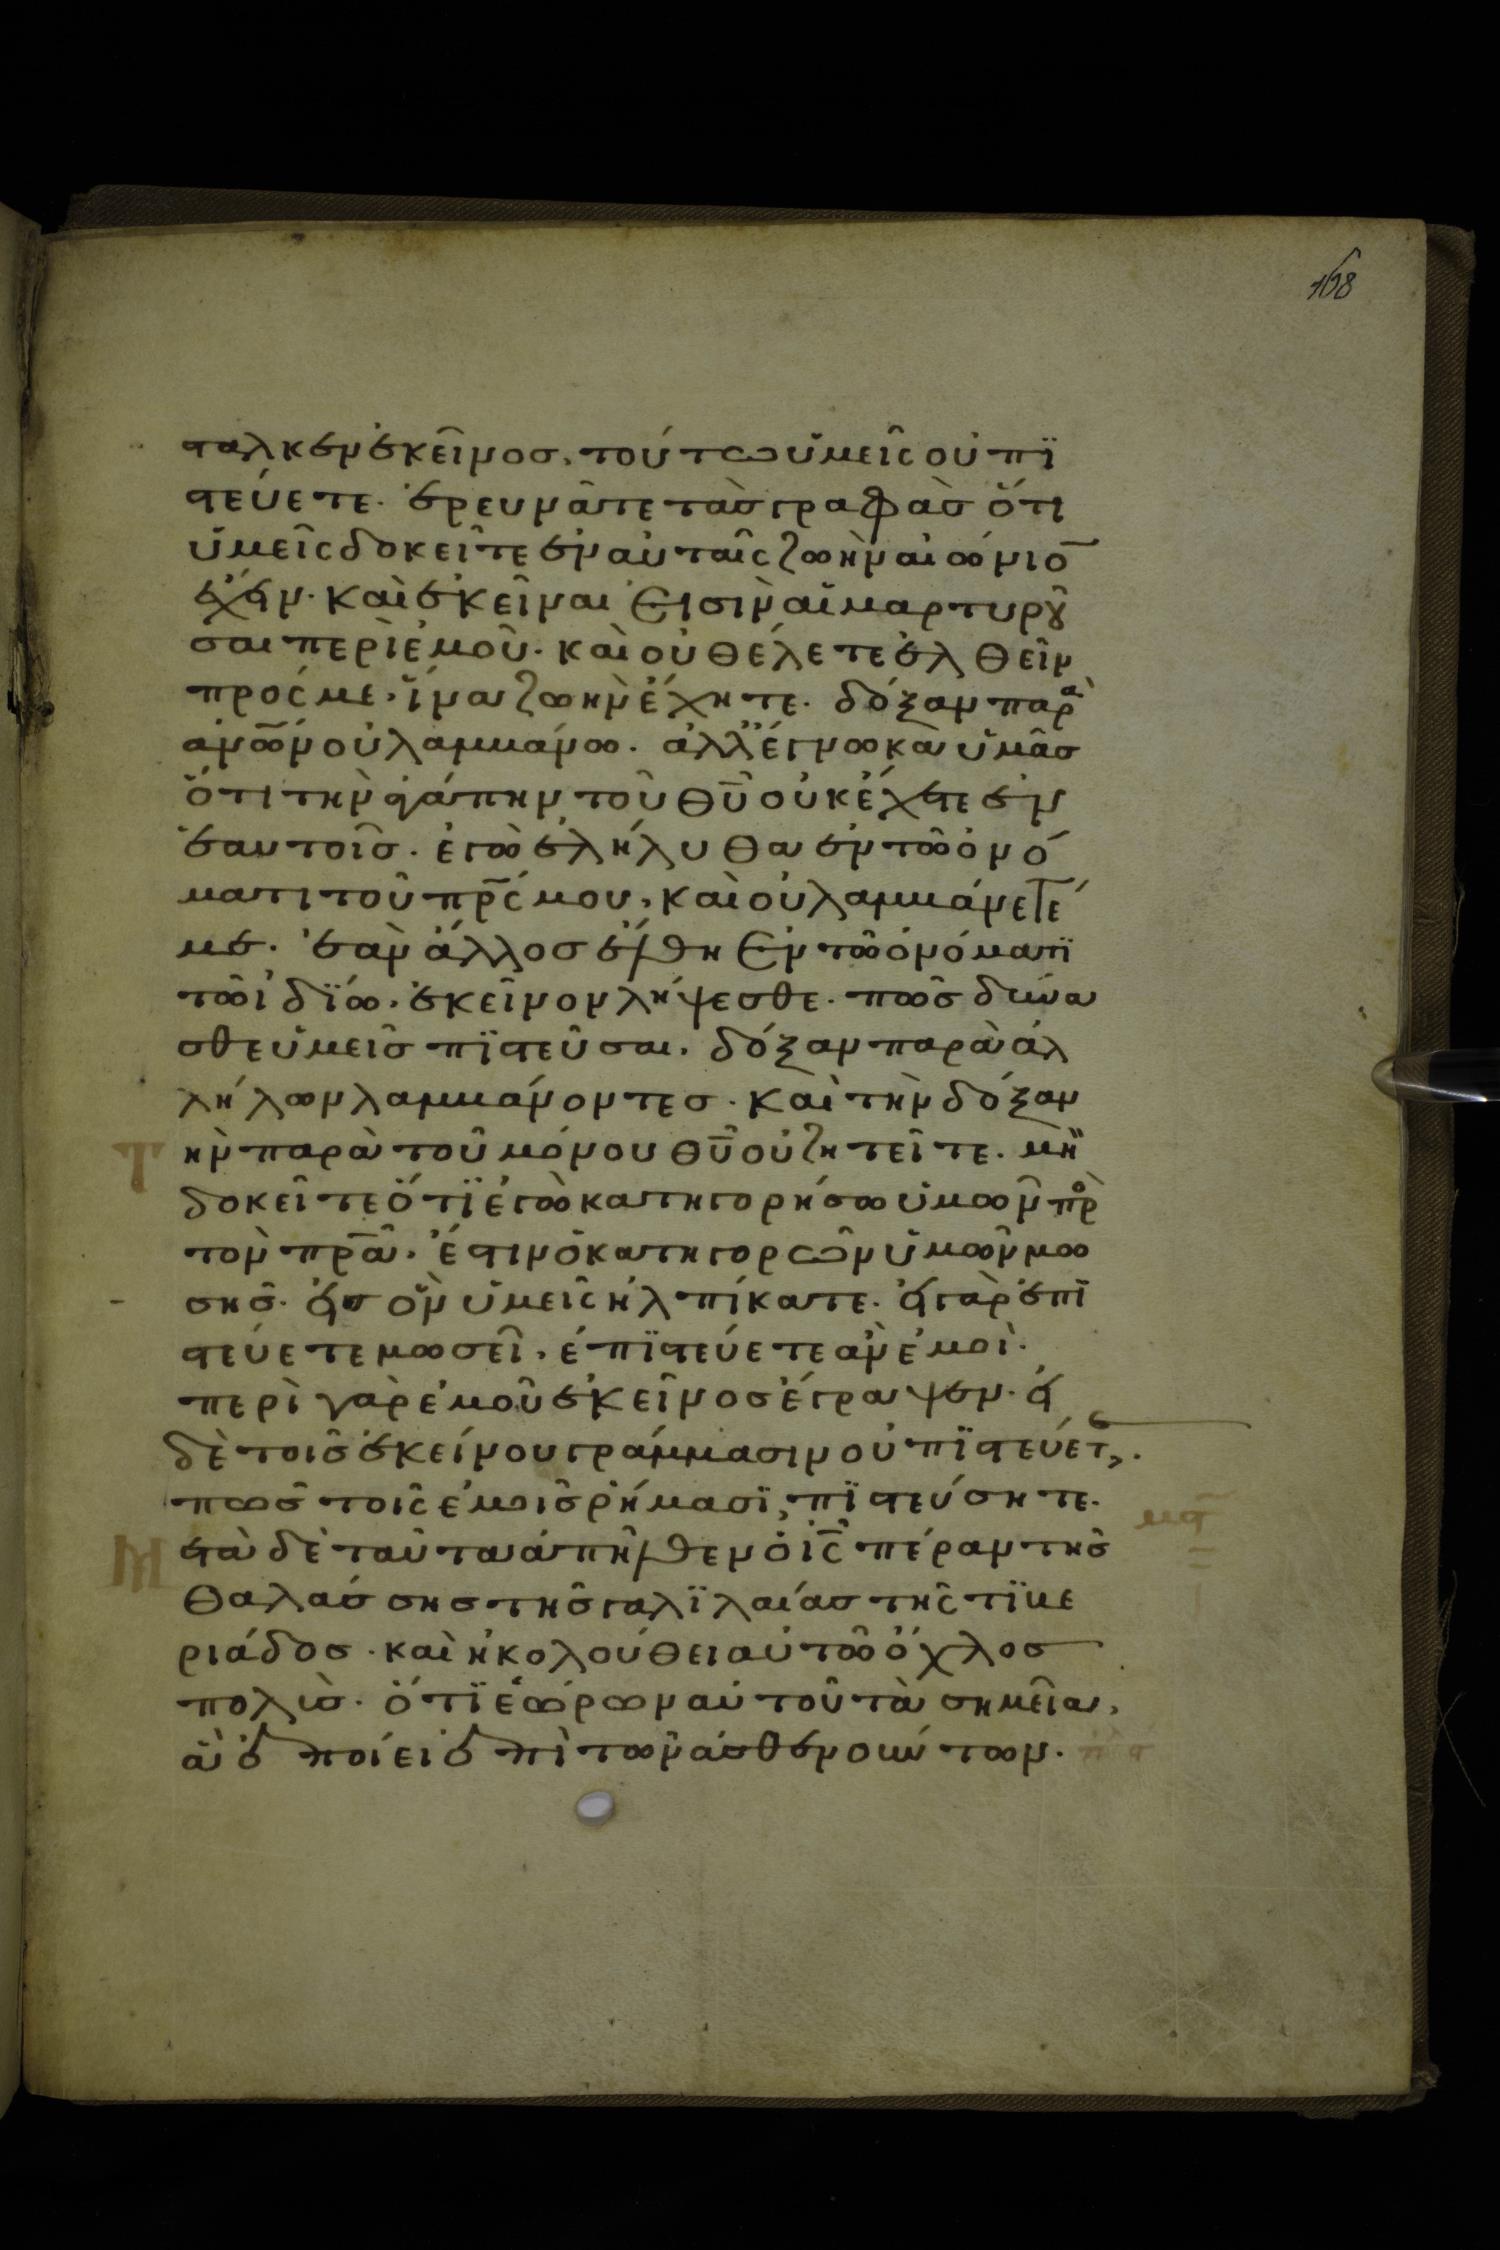 168
σταλκεν ἐκεῖνοσ, τούτω ὑμεῖς οὐ πϊ
στεύετε· ἐρευνᾶτε τὰσ γραφὰσ ὅτι
ὑμεῖς δοκεῖτε ἐν αὐταῖς ζωὴν αἰώνιο̅
ἔχειν· καὶ ἐκεῖναι εἰσὶν αἱ μαρτυροῦ
σαι περὶ ἐμοῦ· καὶ οὐ θέλετε ἐλθεῖν
πρός με, ἵνα ζωὴν ἔχητε· δόξαν παρὰ
ἀν̅ω̅ν οὐ λαμβάνω· ἀλλ' ἔγνωκα ὑμᾶσ
ὅτι τὴν ἀγάπην τοῦ θ̅υ̅ οὐκ ἔχετε ἐν
ἑαυτοῖσ· ἐγὼ ἐλήλυθα ἐν τῶ ὀνό
ματι τοῦ π̅ρ̅ς μου, καὶ οὐ λαμβάνετέ
με· ἐὰν ἄλλοσ ἔλθη ἐν τῶ ὀνόματϊ
τῶ ἰδϊω, ἐκεῖνον λήψεσθε· πῶσ δύνα
σθε ὑμεῖσ πϊστεῦσαι, δόξαν παρὰ ἀλ
λήλων λαμβάνοντεσ· καὶ τὴν δόξαν
τ ἣν παρὰ τοῦ μόνου θ̅υ̅ οὐ ζητεῖτε· μὴ
δοκεῖτε ὅτϊ ἐγὼ κατηγορήσω ὑμῶν πρὸ
τὸν π̅ρ̅α̅· ἔστιν ὁ κατηγορῶν ὑμῶν μω
σῆσ· εἰσ ὃν ὑμεῖς ἠλπίκατε· εἰ γὰρ ἐπϊ
στεύετε μωσεῖ, ἐπϊστεύετε ἂν ἐμοὶ·
περὶ γὰρ ἐμοῦ ἐκεῖνοσ ἔγραψεν· εἰ
δὲ τοῖσ ἐκείνου γράμμασιν οὐ πϊστεύετε,·
πῶσ τοῖς ἐμοῖσ ῥήμασϊ, πϊστεύσητε·
Μ ετὰ δὲ ταῦτα ἀπῆλθεν ὁ ι̅ς̅ πέραν τῆσ
θαλάσσησ τῆσ γαλϊλαίασ τῆς τϊβε
ριάδοσ· καὶ ἠκολούθει αὐτῶ ὄχλοσ
πολὺσ· ὅτϊ ἑώρων αὐτοῦ τὰ σημεῖα,
ἃ ἐποίει ἐπὶ τῶν ἀσθενούντων·